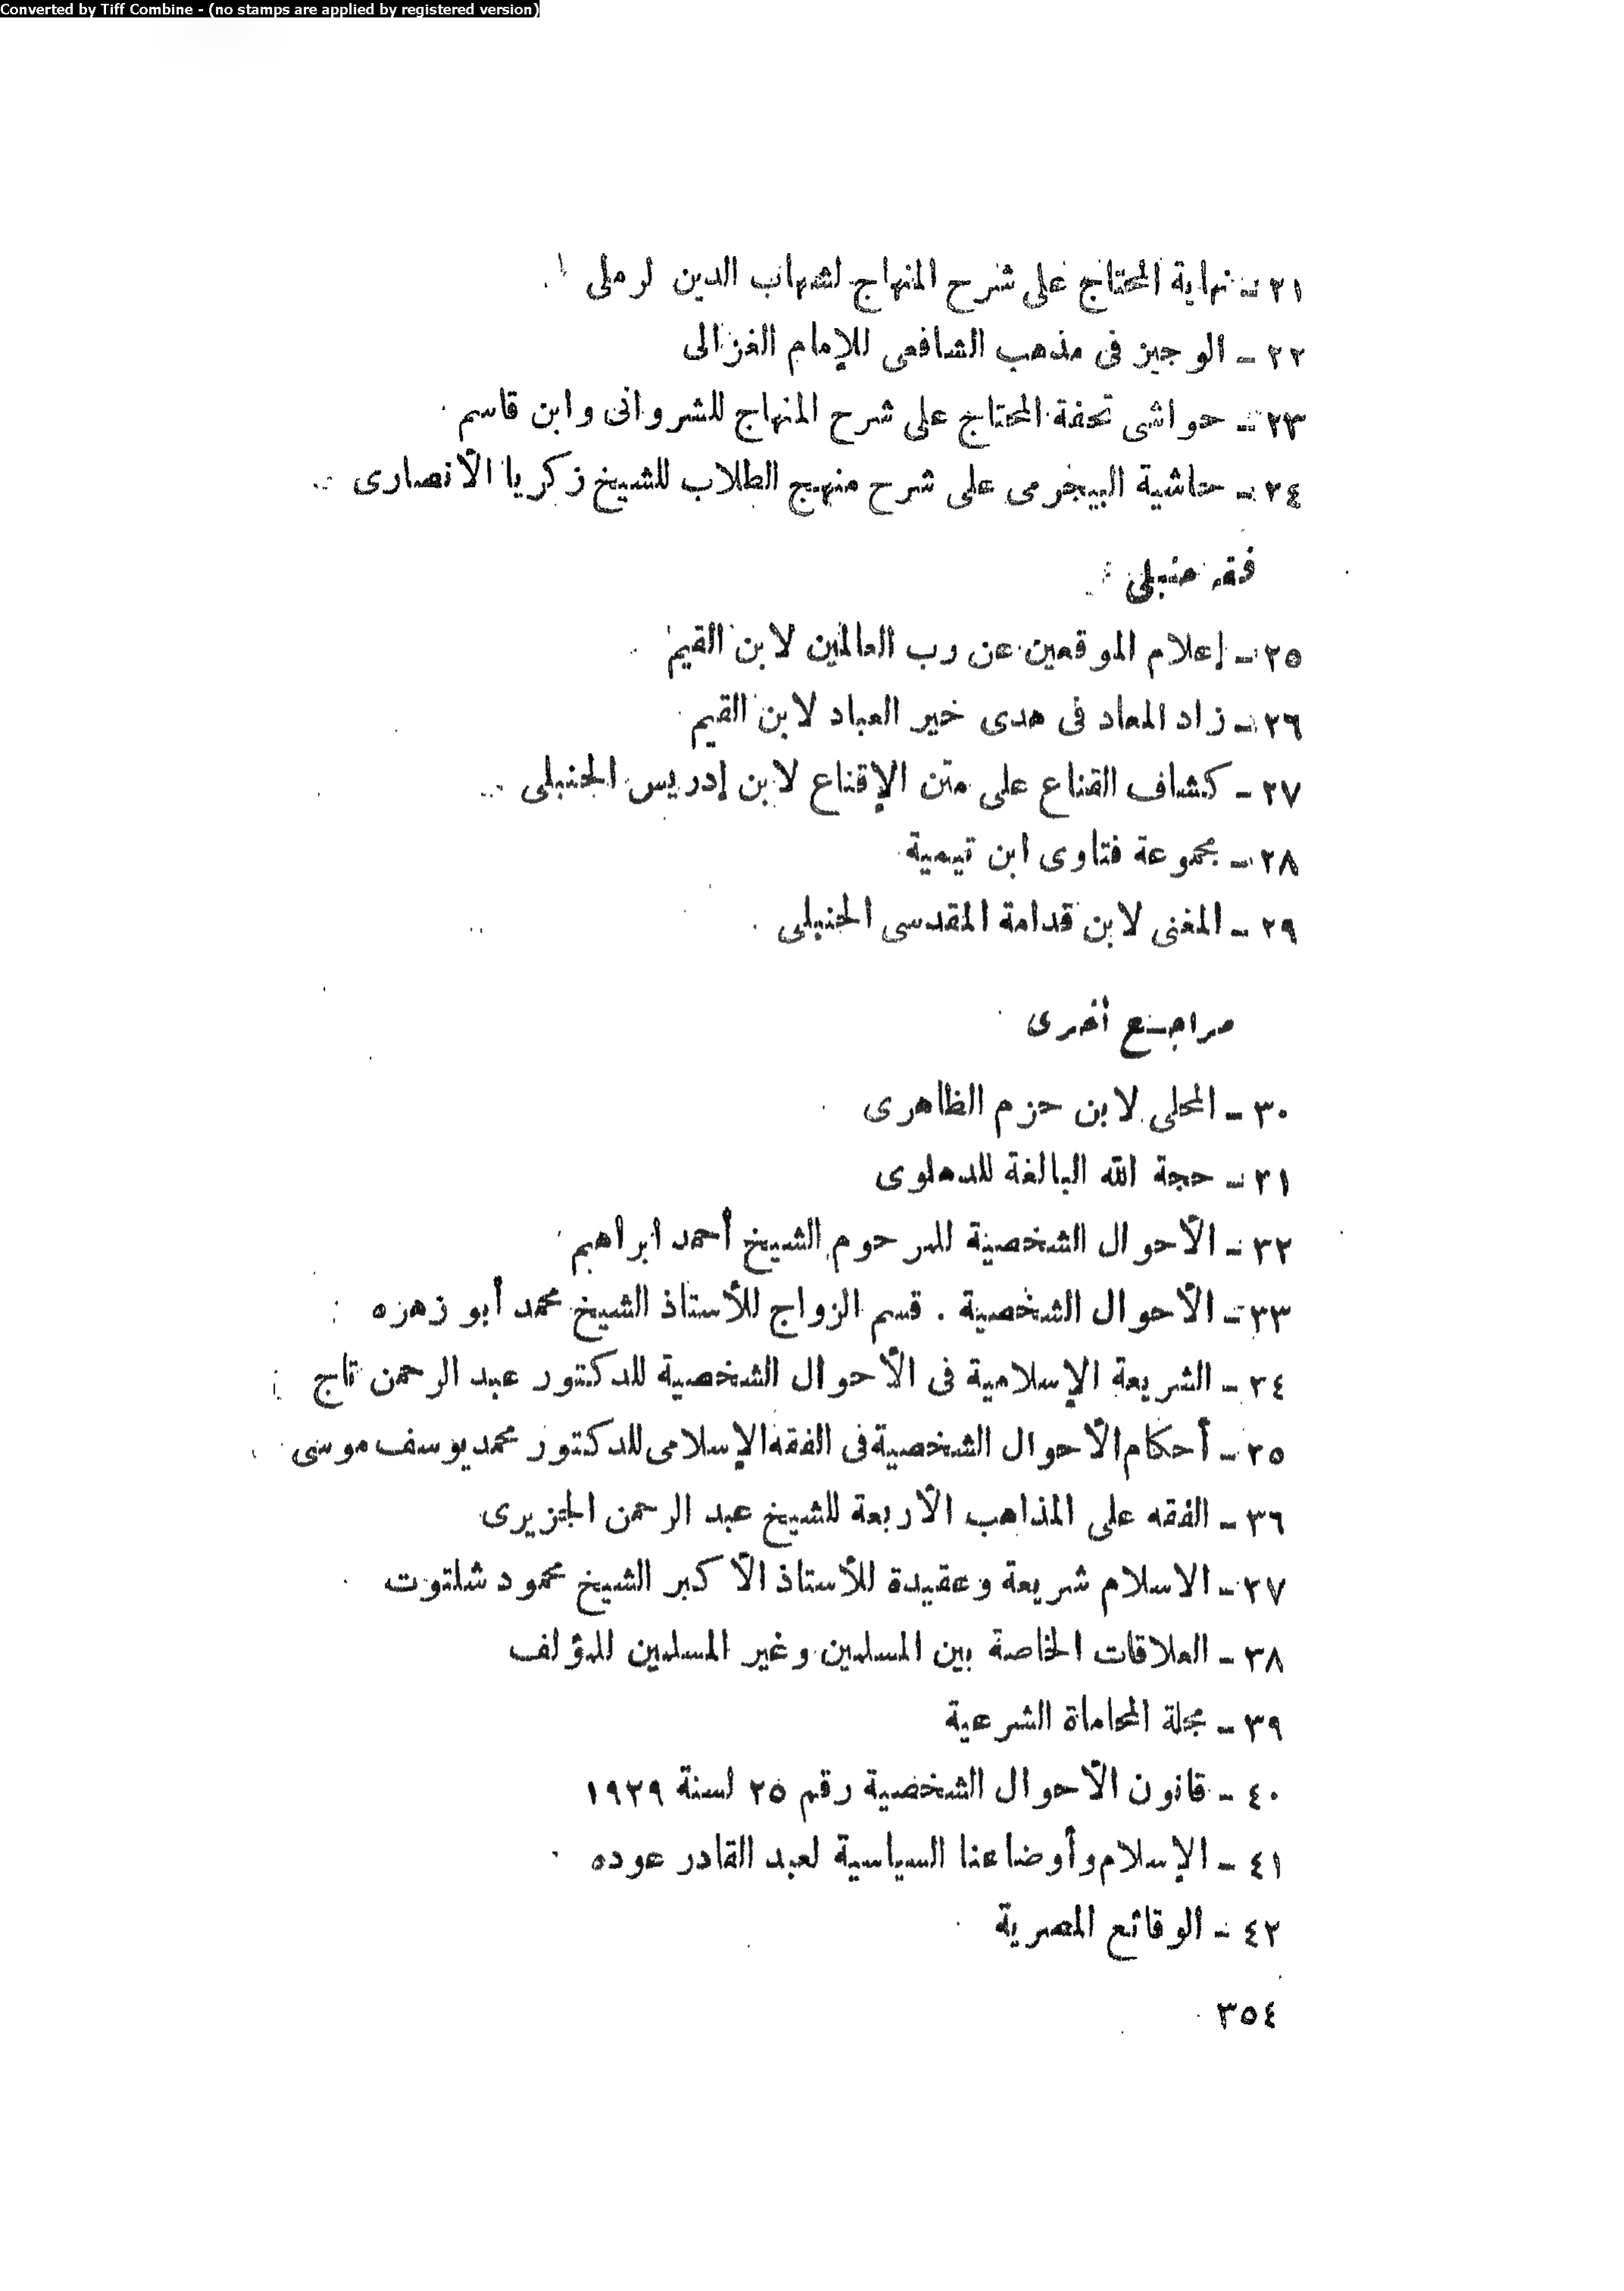 Converted by Tiff Combine - (no stamps are applied by registered version)
٢١ - نهاية المحتاج على شرح المنهاج لشهاب الدين لرملى
٢٢ - الوجيز فى مذهب الشافعى للإمام الغزالى
٢٣ - حواشى تحفة المحتاج على شرح المنهاج للشروانى وابن قاسم
٢٤ - حاشية البيجرمى على شرح منهج الطلاب للشيخ زكريا الأنصارى
فقه حنبلى :
٢٥ - إعلام الموقعين عن رب العالمين لابن القيم
٢٦ - زاد المعاد فى هدى خير العباد لابن القيم
٢٧ - كشاف القناع على متن الإقناع لابن إدريس الحنبلى
٢٨ - مجموعة فتاوى ابن تيمية
٢٩ - المغنى لابن قدامة المقدسى الحنبلى
مراجع أخرى
٣٠ - المحلى لابن حزم الظاهرى
٣١ - حجة الله البالغة للدهلوى
٣٢ - الأحوال الشخصية للمرحوم الشيخ أحمد ابراهيم
٣٣ - الأحوال الشخصية . قسم الزواج للأستاذ الشيخ محمد أبو زهره
٣٤ - الشريعة الإسلامية فى الأحوال الشخصية للدكتور عبد الرحمن تاج
٣٥ - أحكام الأحوال الشخصية فى الفقه الإسلامى للدكتور محمد يوسف موسى
٣٦ - الفقه على المذاهب الأربعة للشيخ عبد الرحمن الجزيرى
٣٧ - الاسلام شريعة وعقيدة للأستاذ الأكبر الشيخ محمود شلتوت
٣٨ - العلاقات الخاصة بين المسلمين وغير المسلمين للمؤلف
٣٩ - مجلة المحاماة الشرعية
٤٠ - قانون الأحوال الشخصية رقم ٢٥ لسنة ١٩٢٩
٤١ - الإسلام وأوضاعنا السياسية لعبد القادر عوده
٤٢ - الوقائع المصرية
٣٥٤